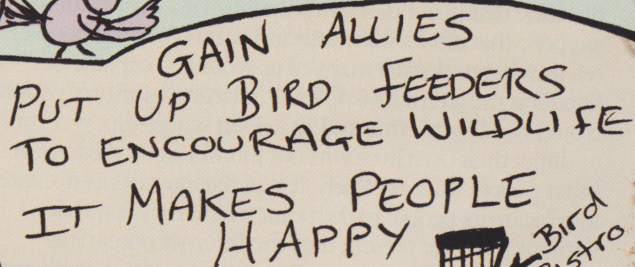 GAIN ALLIES
PUT UP BIRD FEEDERS
TO ENCOURAGE WILDLIFE
IT MAKES PEOPLE
HAPPY
Bird
Bistro